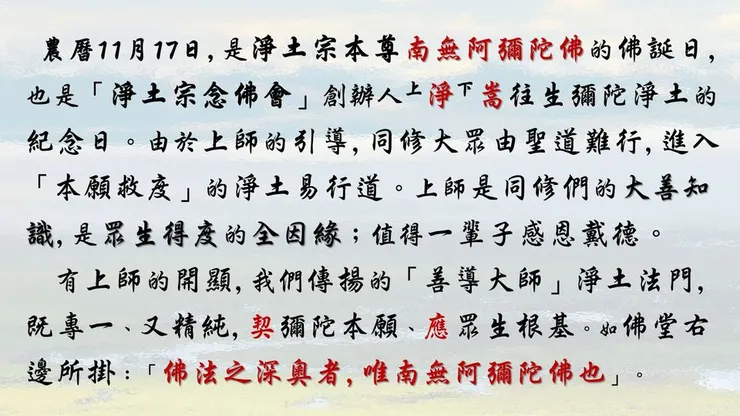 農曆11月17日,是淨土宗本尊南無阿彌陀佛的佛誕日,
也是「淨土宗念佛會」創辦人上淨下嵩往生彌陀淨土的
紀念日。由於上師的引導,同修大眾由聖道難行,進入
「本願救度」的淨土易行道。上師是同修們的大善知
識,是眾生得度的全因緣;值得一輩子感恩戴德。
有上師的開顯,我們傳揚的「善導大師」淨土法門,
既專一、又精純,契彌陀本願、應眾生根基。如佛堂右
邊所掛:「佛法之深奧者,唯南無阿彌陀佛也」。